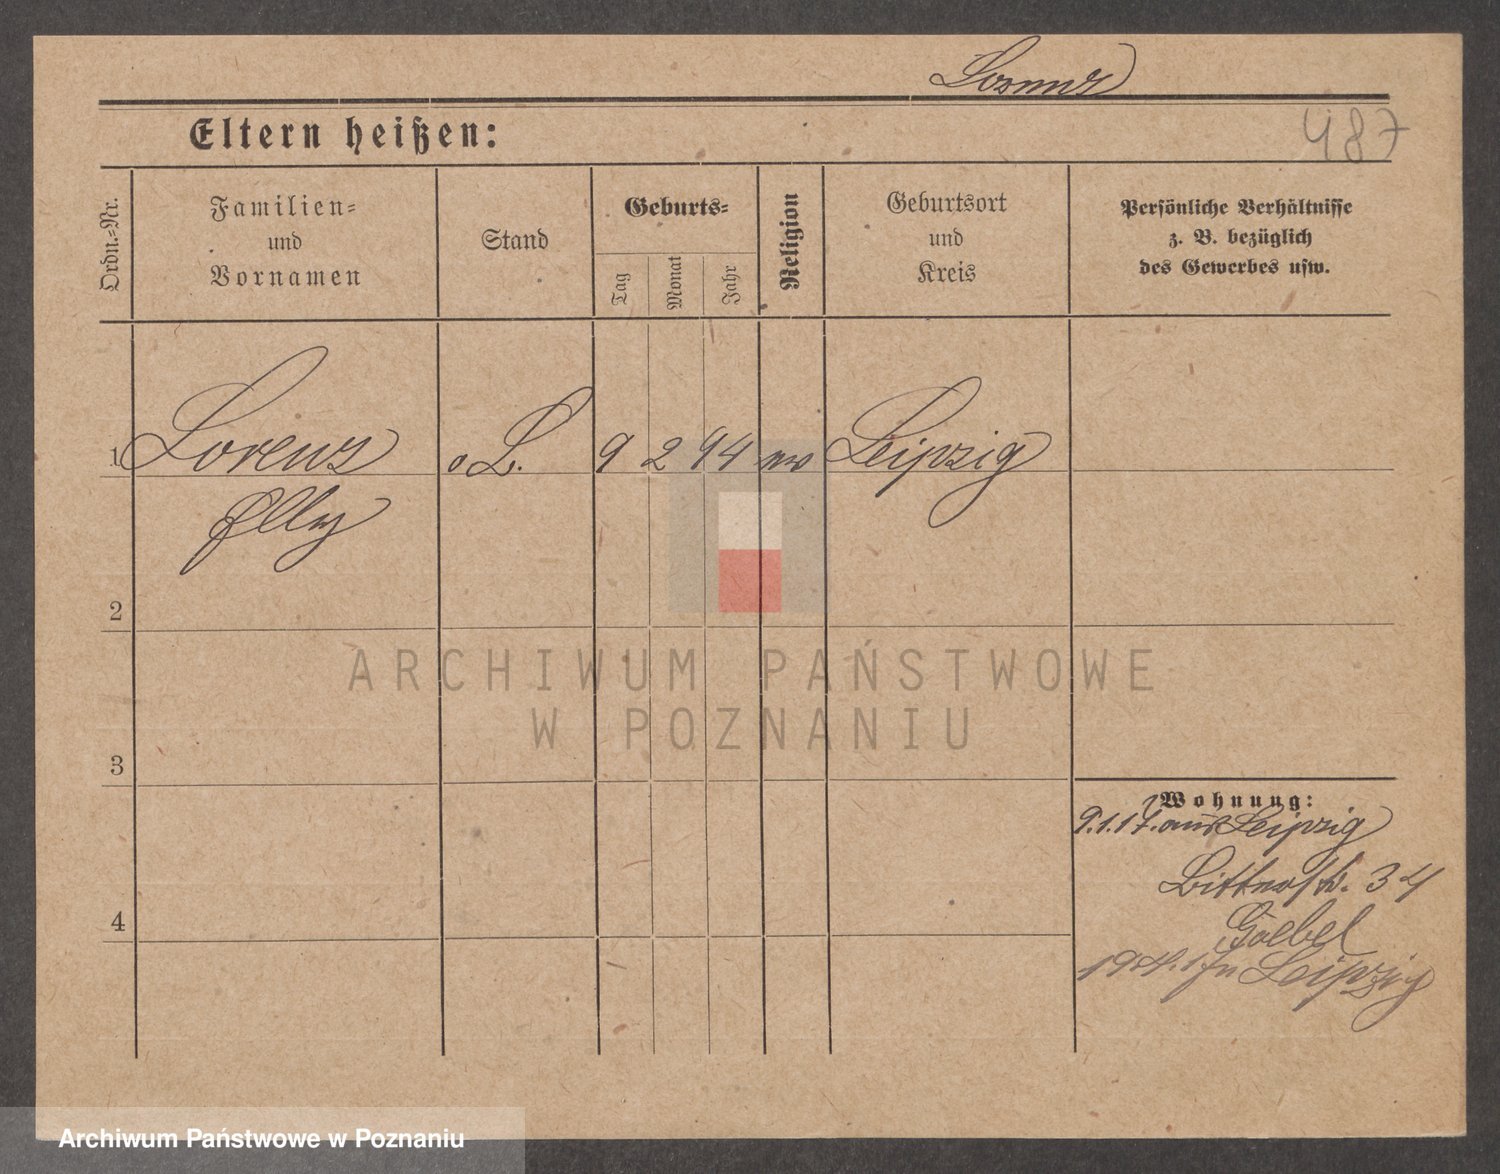 Lorenz
Eltern heißen:
487
Ordn.=Nr.
Familien=
und
Vornamen
Stand
Geburts=
Tag
Monat
Jahr
Religion
Geburtsort
und
Kreis
Persönliche Verhältnisse
z. B. bezüglich
des Gewerbes usw.
1 Lorenz o L. 9 2 94 ev Leipzig
Elly
2
ARCHIWUM PAŃSTWOWE
W POZNANIU
3
Wohnung:
9.1.17. aus Leipzig
Bitterstr. 34
Goebel
Leipzig
4
Archiwum Państwowe w Poznaniu